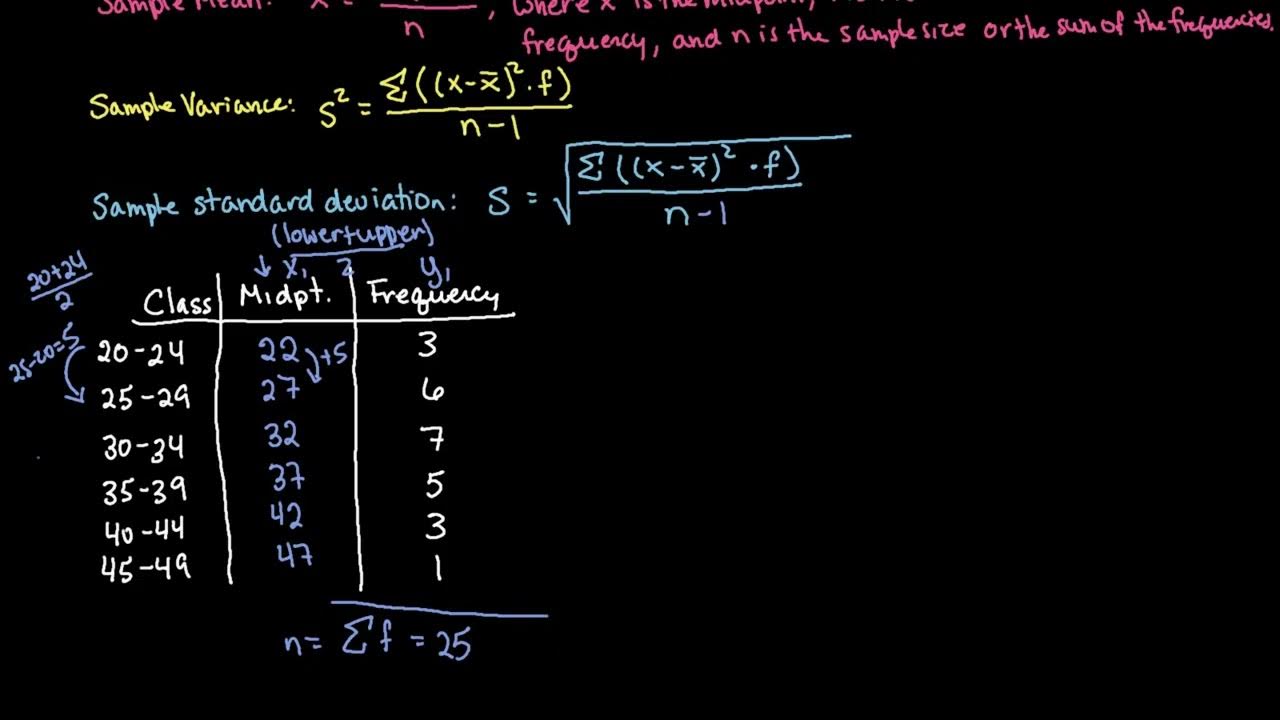 Sample Mean: x̄ = n, where x is the midpoint,
frequency, and n is the sample size or the sum of the frequencies.
Sample Variance: s² = Σ((x-x̄)²·f) / n-1
Sample standard deviation: s = √(Σ((x-x̄)²·f) / n-1)
(lower+upper)
2
20+24
2
x₁ y₁
Class Midpt. Frequency
25-20=5
20-24 22 3
+5
25-29 27 6
30-34 32 7
35-39 37 5
40-44 42 3
45-49 47 1
n= Σf = 25